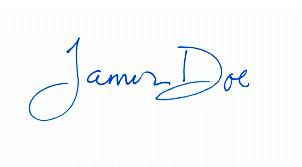 James Doe